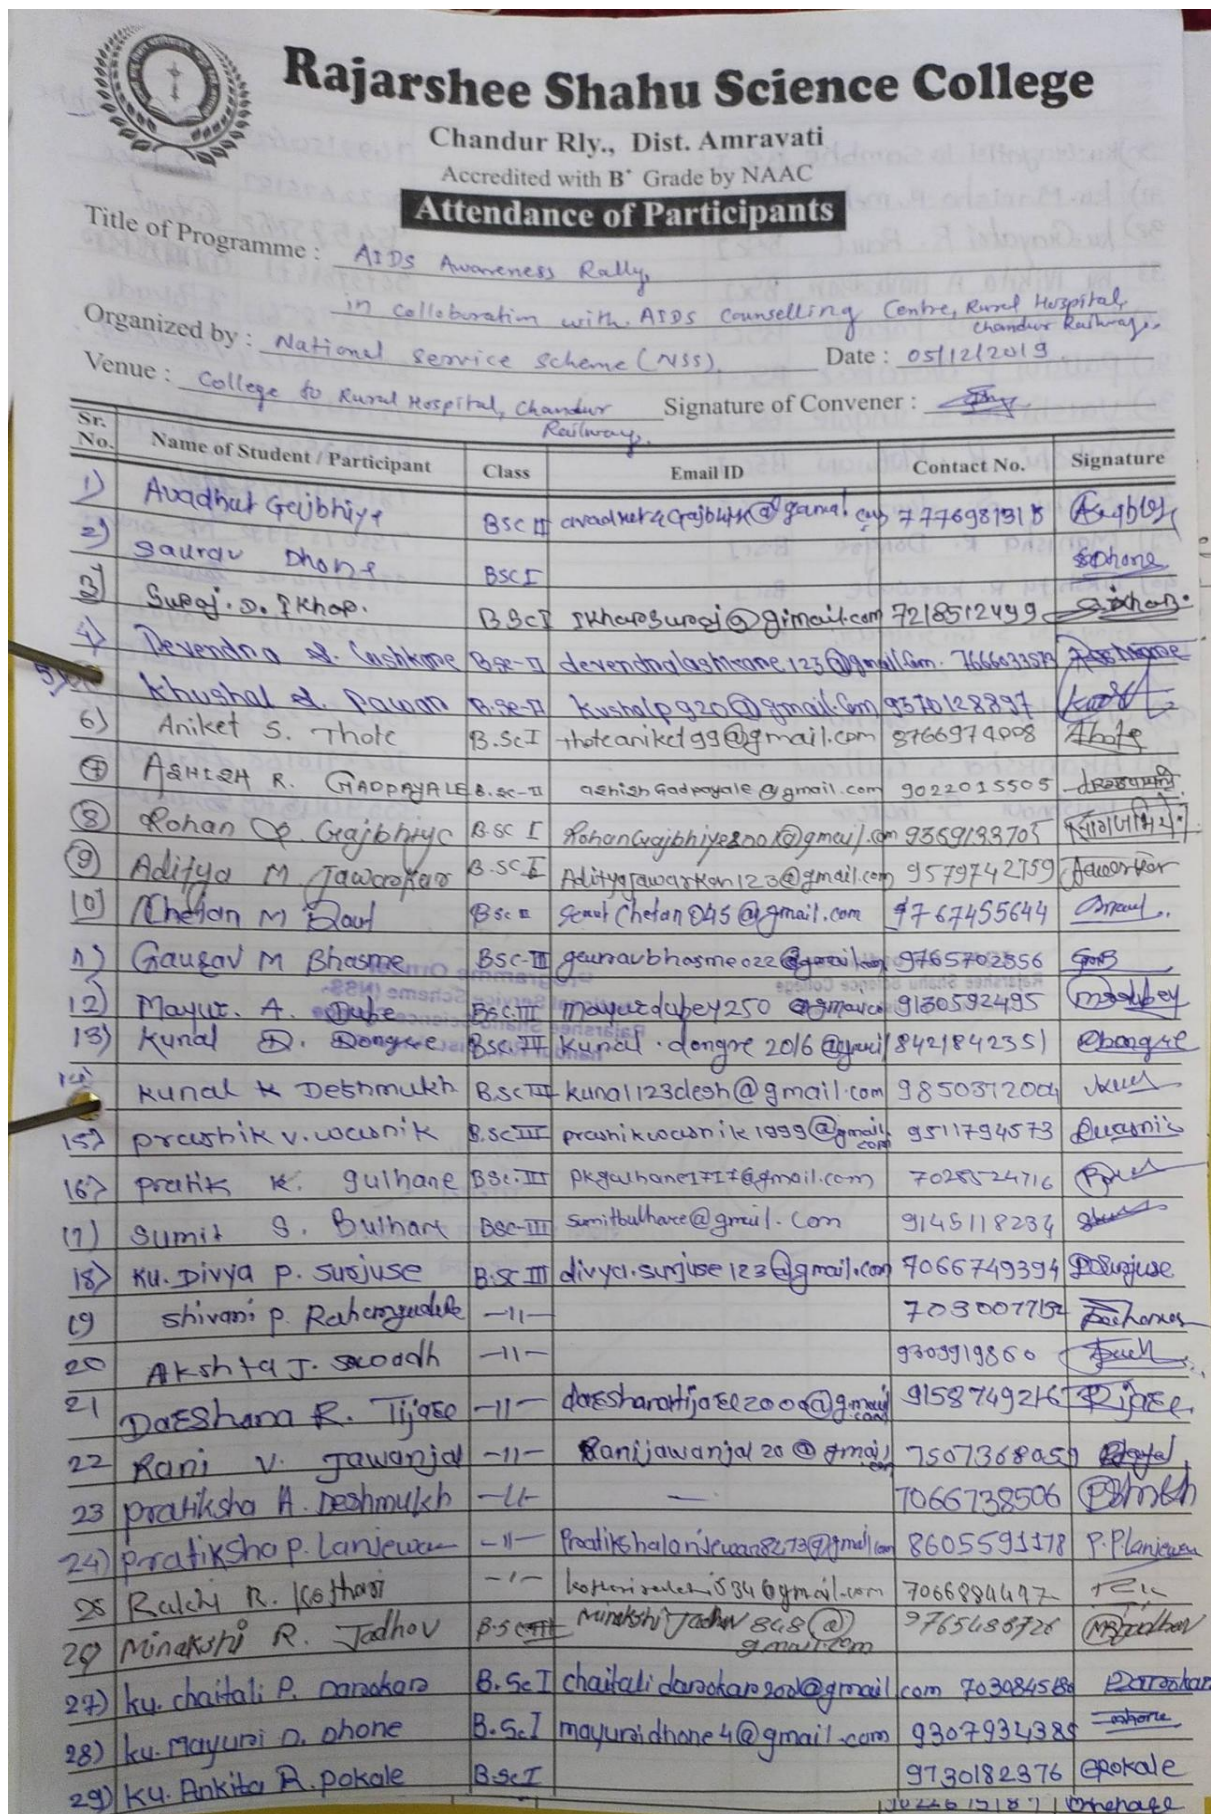 Rajarshee Shahu Science College
Chandur Rly., Dist. Amravati
Accredited with B+ Grade by NAAC
Attendance of Participants
Title of Programme : AIDS Awareness Rally,
in collaboration with AIDS Counselling Centre, Rural Hospital, Chandur Railway.
Organized by : National Service Scheme (NSS) Date : 05/12/2019
Venue : College to Rural Hospital, Chandur Railway. Signature of Convener :
Sr. No. Name of Student / Participant Class Email ID Contact No. Signature
1) Avadhut Gajbhiye BSC II 7776981918
2) Saurav Dhone BSC I SDhone
3) Suraj. D. Ikhar. B.Sc I Ikharsuraj@gimail.com 7218512499
4) Devendra S. Lashkare BSc-II devendralashkare123@gmail.com. 7666033573
5) Khushal d. Pawar B.Sc-II kushalp920@gmail.com 9370128897
6) Aniket S. Thote B.Sc I thoteaniket99@gmail.com 8766974008 Thote
7 ASHISH R. GADPAYALE B.sc-II ashishGadpayale@gmail.com 9022015505
8 Rohan Gajbhiye B.SC I 9359133703
9 Aditya M Jawarkar B.SC I Adityajawarkar123@gmail.com 9579742759 Jawarkar
10) Chetan M Raut BSc II 9767455644
11) Gaurav M Bhasme BSC-III gauravbhasme022@gmail.com 9765702356
12) Mayur. A. Dube BSC.III mayurdubey250@gmail.com 9130592495
13) Kunal D. Dongre BSC-III kunal.dongre2016@gmail 8421842351
14) Kunal K Deshmukh B.SC III kunal123desh@gmail.com
15) prashik v. wasnik B.SC III prashikwasnik1999@gmail.com 9511794573
16) pratik K. gulhane BSc.III pkgulhane1717@gmail.com 7028524716
17) Sumit S. Bulhare BSC-III sumitbulhare@gmail.com 9145118234
18) Ku. Divya p. surjuse B.SC III divya.surjuse123@gmail.com 7066749394 DSurjuse
19 Shivani p. -11-
20 Akshta J. -11- 9309919860
21 Darshana R. Tijare -11- darshanatijare2000@gmail.com 9158749216 Tijare
22 Rani V. Jawanjal -11- Ranijawanjal20@gmail.com 7507368059
23 pratiksha A. Deshmukh -11- — 7066738506
24) pratiksha p. Lanjewar -11- Pratikshalanjewar8273@gmail.com 8605591178 P.P.Lanjewar
25 Rakhi R. Kothari -11- 7066884497
26 Minakshi R. Jadhav B.SC III MinakshiJadhav848@gmail.com 9765486726 MRJadhav
27) ku. chaitali P. Darokar B.Sc I chaitalidarokar200@gmail.com
28) ku. Mayuri D. Dhone B.Sc I mayuridhone4@gmail.com 9307934389 Dhone
29) ku. Ankita R. pokale B.Sc I 9730182376 pokale